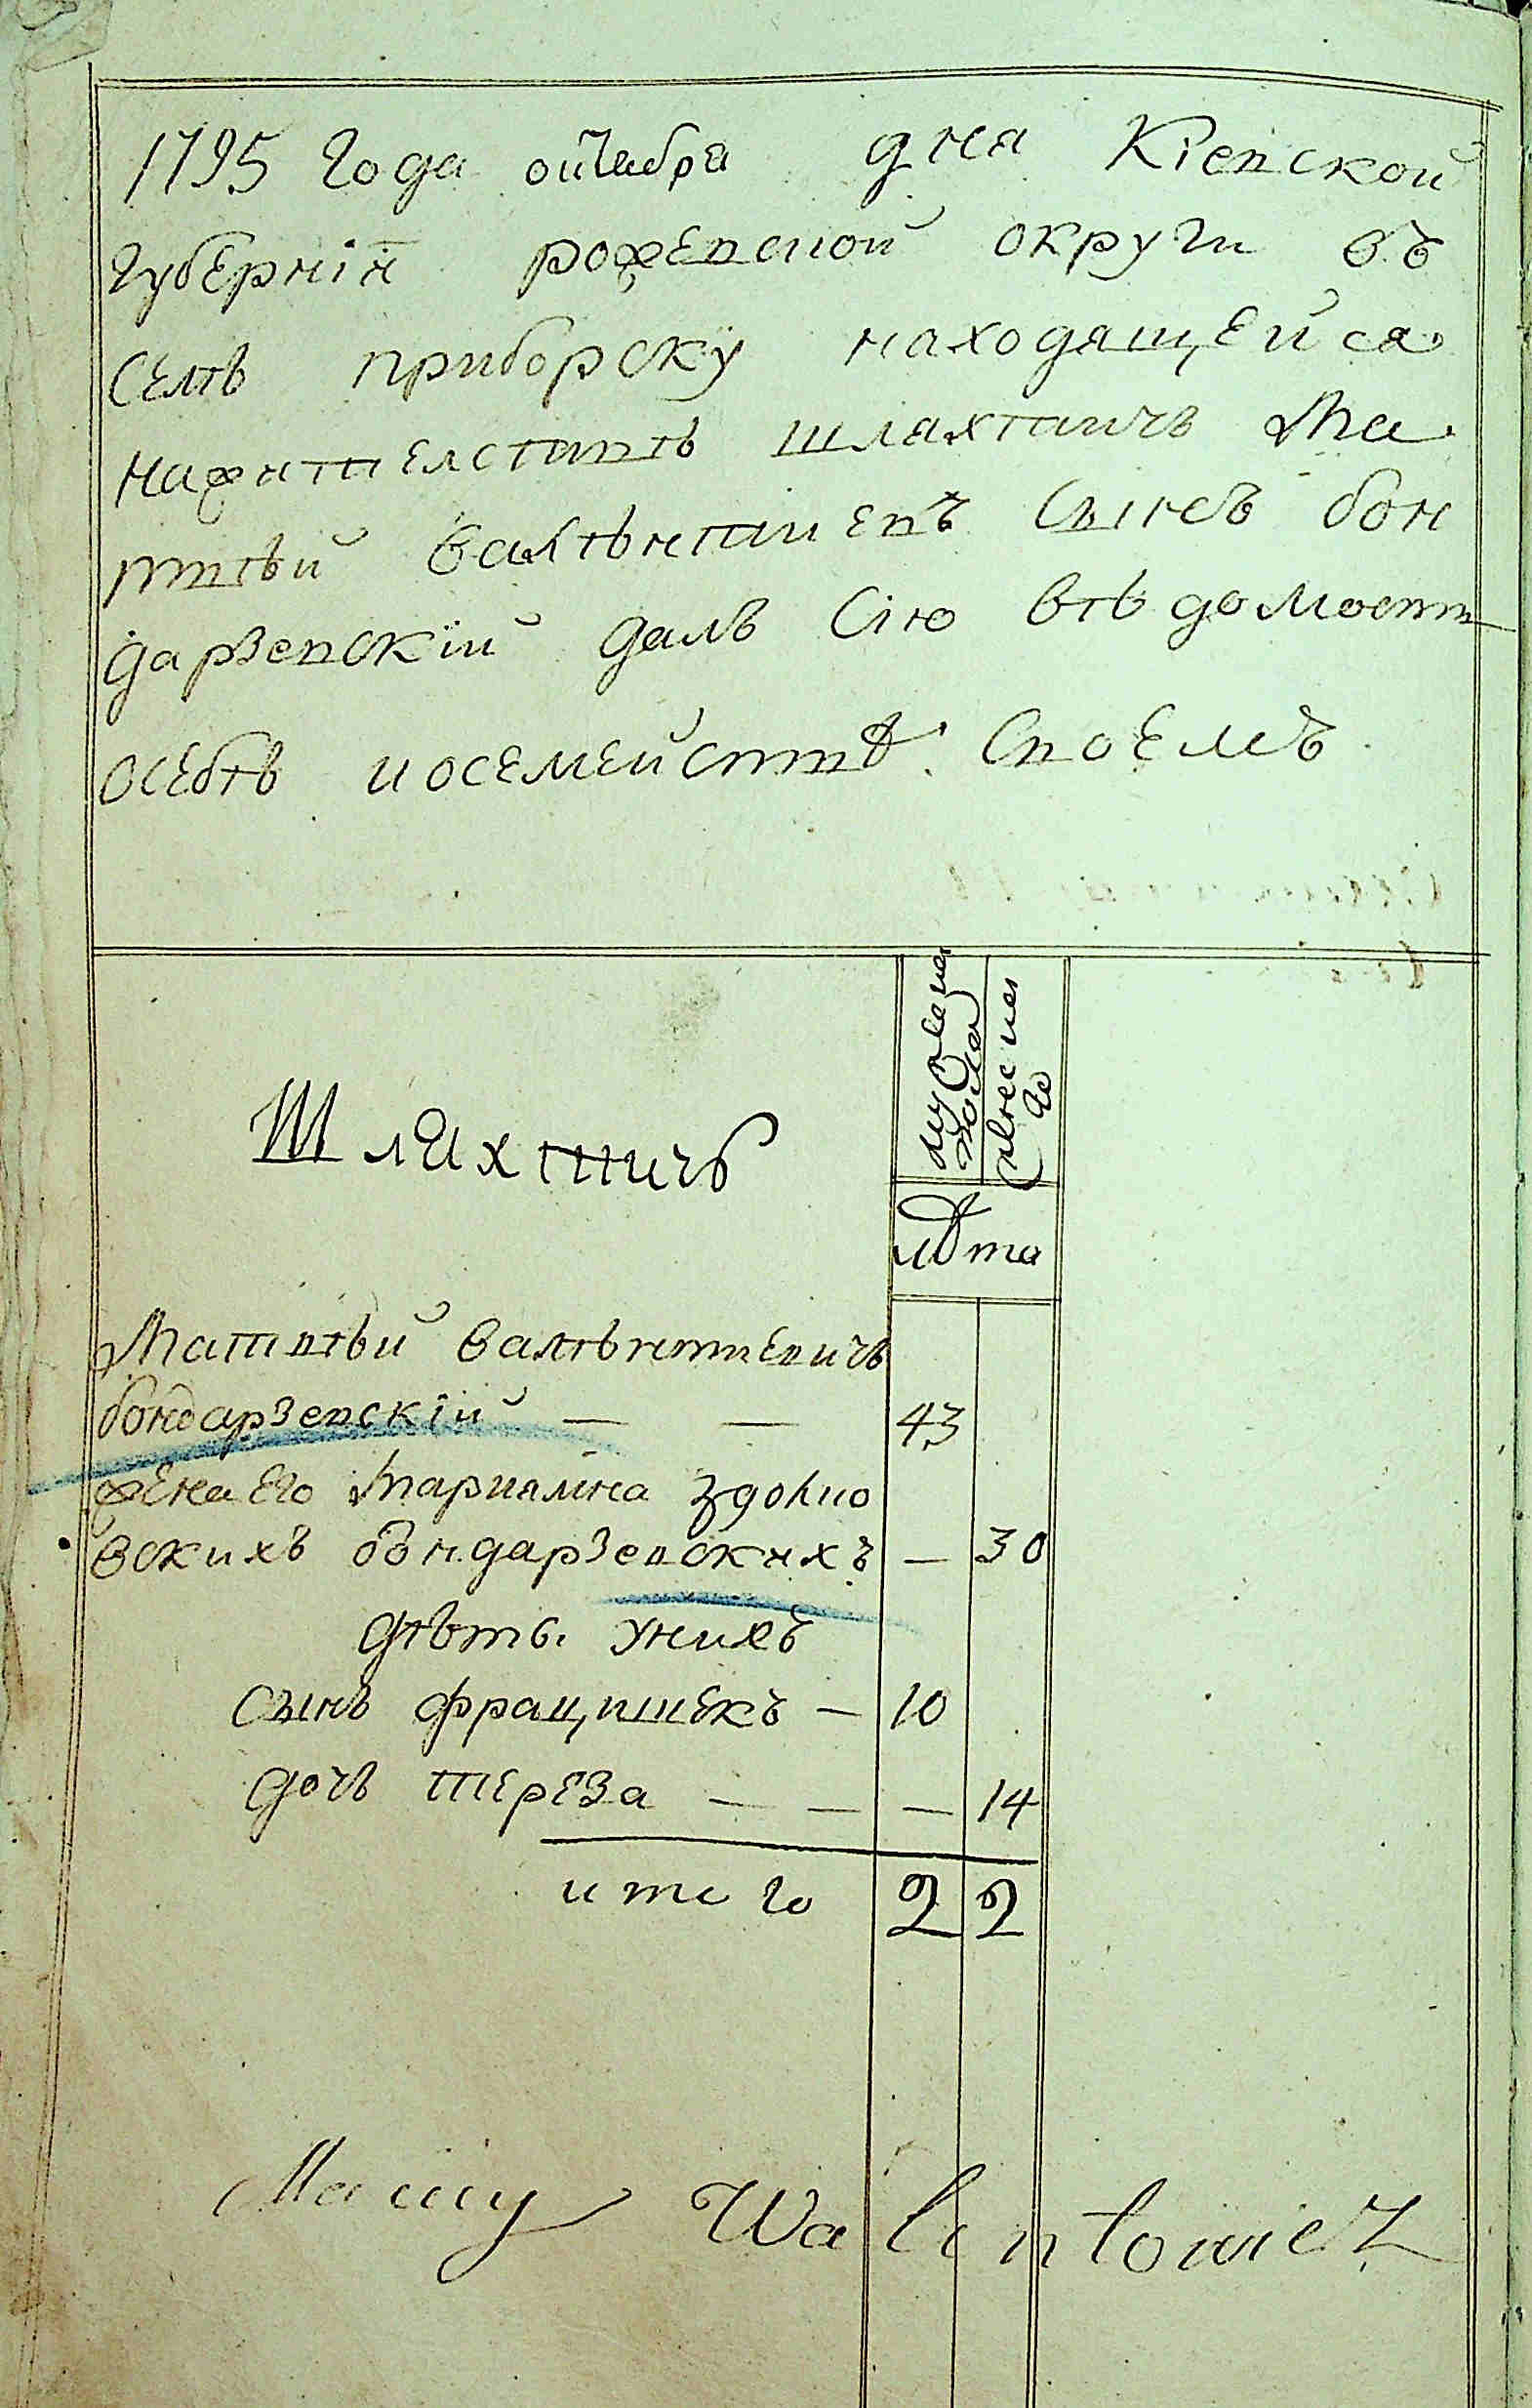 1795 года октабра дня Кіевской
губерніи рожевской округи въ
селѣ приборску находящейся
нажителстввѣ шляхтичъ Ма
твѣй валѣнтиевъ сынъ бон
дарзевскій далъ сію вѣдомост
осебѣ иосемействѣ своемъ
мужеска
пола
женска
го
Шляхтичъ
лѣта
Матвѣй валѣнтиевичъ
бондарзевскій — — 43
жена его Мариянна здолно
вскихъ бондарзевскихъ — 30
дѣть унихъ
сынъ францишекъ — 10
дочъ тереза — — — 14
итого 2 2
Maciey Walentowicz